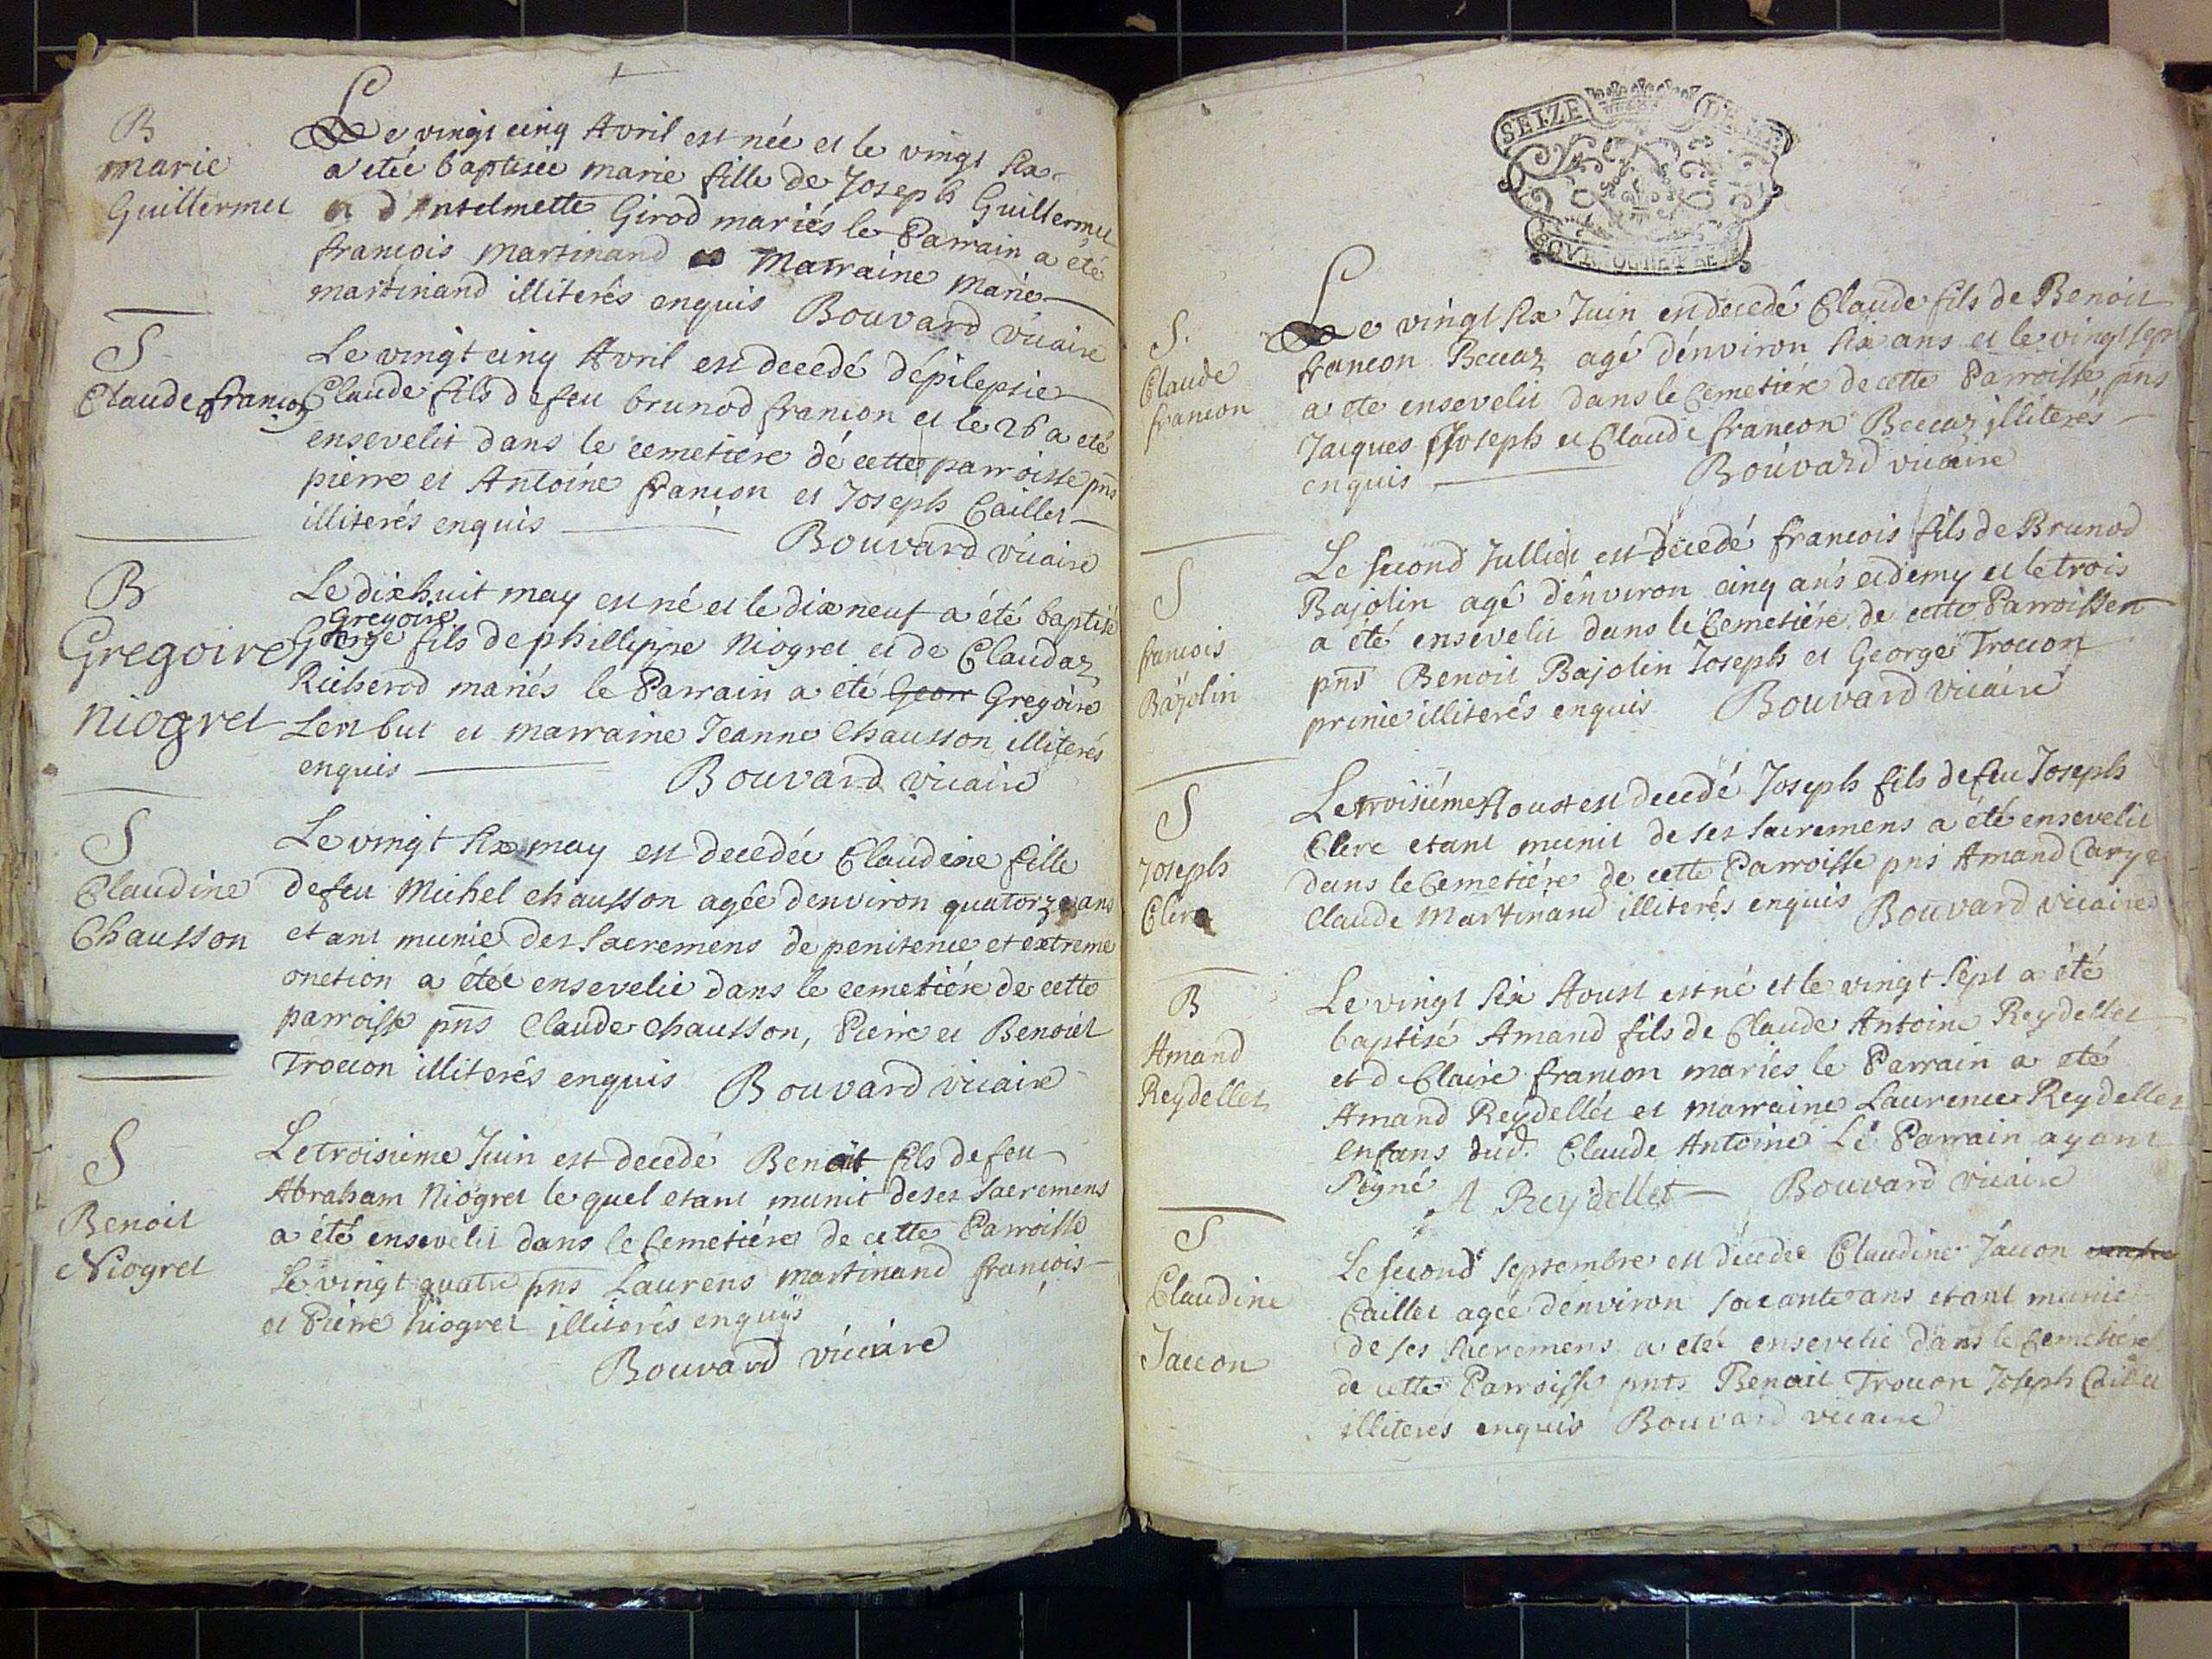 B
marie
Guillermet
Le vingt cinq Avril est née et le vingt six
a etée baptisée marie fille de Joseph Guillermet
et d'Antelmette Girod mariés le Parrain a été
francois martinand et Marraine Marie
martinand illiterés enquis Bouvard vicaire
S
Claude françon
Le vingt cinq Avril est decedé d'épilepsie
Claude fils de feu brunod françon et le 26 a eté
ensevelit dans le cemetiére de cette parroisse pns
pierre et Antoine françon et Joseph Caillet
illiterés enquis
Bouvard vicaire
B
Gregoire
Niogret
Le dixhuit may est né et le dix neuf a été baptisé
Gregoire
George fils de phillippe Niogret et de Claudaz
Richerod mariés le Parrain a eté Geor Gregoire
Lenbut et marraine Jeanne Chausson illiterés
enquis
Bouvard vicaire
S
Claudine
Chausson
Le vingt six may est decedée Claudine fille
de feu Michel chausson agée denviron quatorze ans
etant munie des sacremens de penitence et extreme
onction a étée ensevelie dans le cemetiére de cette
parroisse pns Claude chausson, Pierre et Benoiet
Troccon illiterés enquis Bouvard vicaire
S
Benoit
Niogret
Le troisieme Juin est decedé Benoit fils de feu
Abraham Niogret le quel etant munit de ses sacremens
a été ensevélit dans le Cemetiére de cette Parroisse
Le vingt quatre pns Laurens martinand françois
et Piérre niogret illiterés enquis
Bouvard vicaire
SEIZE
S.
Claude
francon
Le vingt six Juin est decedé Claude fils de Benoit
francon Beccaz agé d'énviron six ans et le vingt sept
a eté ensevelit dans le Cemetiére de cette Parroisse pns
Jacques Joseph et Claude francon Beccaz illiterés
enquis
Bouvard vicaire
S
francois
Bajolin
Le second Julliet est decedé francois fils de Brunod
Bajolin agé d'énviron cinq ans et demy et le trois
a été ensevelit dans le Cemetiére de cette Parroisse
pns Benoit Bajolin Joseph et George Troccon
prinie illiterés enquis Bouvard Vicaire
S
Joseph
Clerc
Le troisiéme Aoust est decedé Joseph fils de feu Joseph
Clerc etant munit de ses sacremens a été ensevelit
dans le Cemetiére de cette Parroisse pns Amand
Claude Martinand illiterés enquis Bouvard vicaire
B
Amand
Reydellet
Le vingt six Aoust est né et le vingt sept a été
baptisé Amand fils de Claude Antoine Reydellet
et de Claire francon mariés le Parrain a eté
Amand Reydellét et marraine Laurence Reydellet
enfans dud. Claude Antoine Le Parrain ayant
signé A Reydellet Bouvard vicaire
S
Claudine
Jaccon
Le second septembre est décedée Claudine Jaccon
Caillet agée d'énviron soixante ans etant munie
de ses sacremens a etée ensevelie dans le Cemetiére
de cette Parroisse pnts Benoit Troccon Joseph Caillet
illiterés enquis Bouvard vicaire